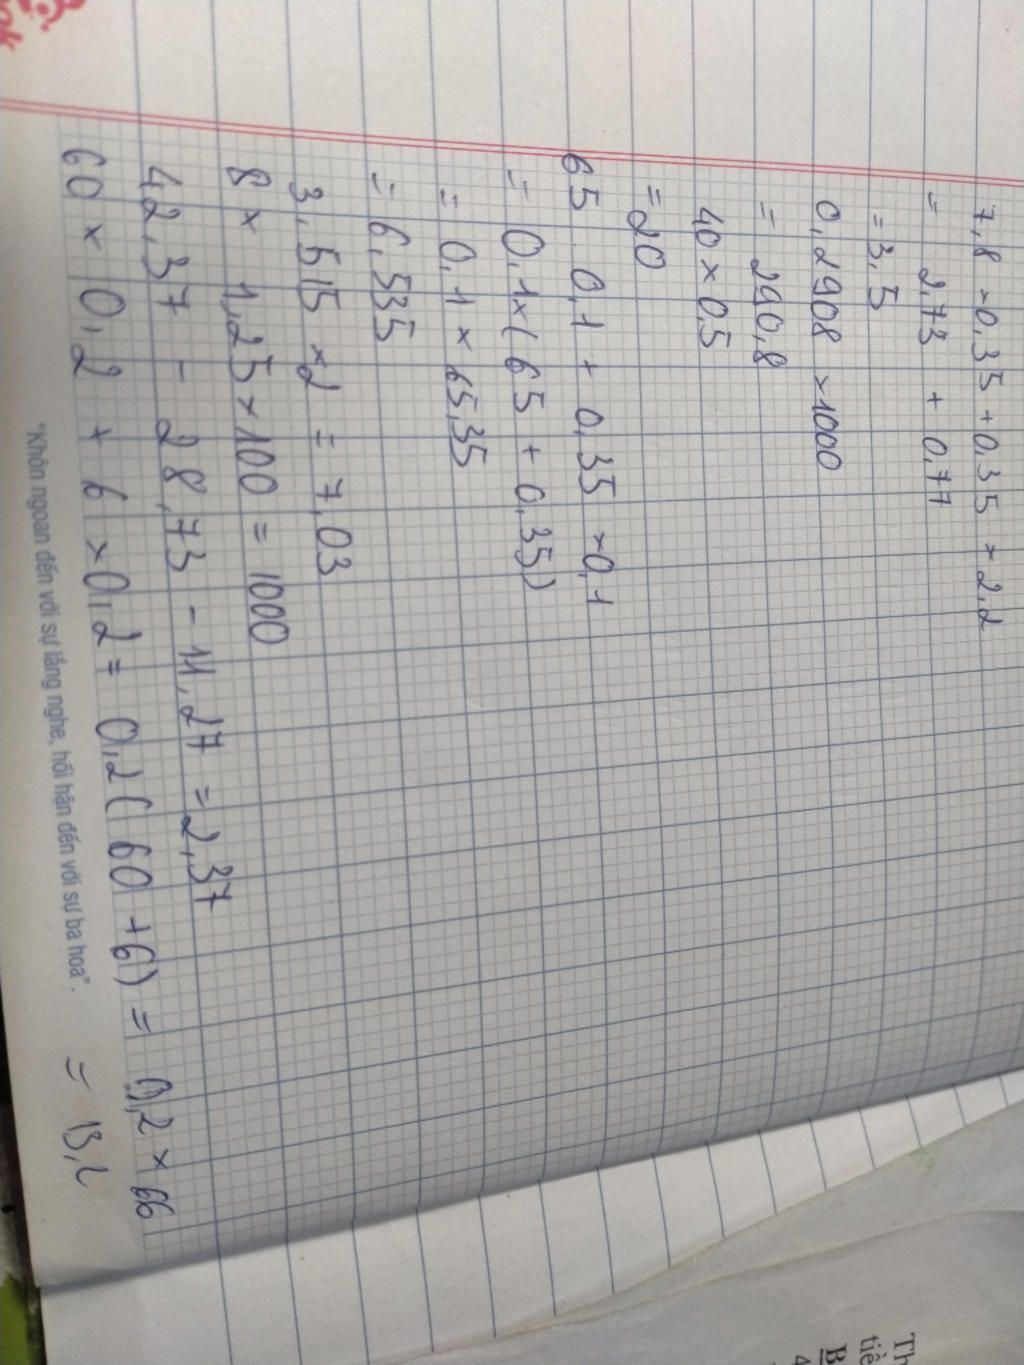 7,8 × 0,35 + 0,35 × 2,2
= 2,73 + 0,77
= 3,5
0,2908 × 1000
= 290,8
40 × 0,5
= 20
65 0,1 + 0,35 × 0,1
= 0,1 × ( 65 + 0,35)
= 0,1 × 65,35
= 6,535
3,515 × 2 = 7,03
8 × 1,25 × 100 = 1000
42,37 - 28,73 - 11,27 = 2,37
60 × 0,2 + 6 × 0,2 = 0,2 ( 60 + 6) = 0,2 × 66
= 13,2
"Khôn ngoan đến với sự lắng nghe, hối hận đến với sự ba hoa".
Th
tiề
B
4